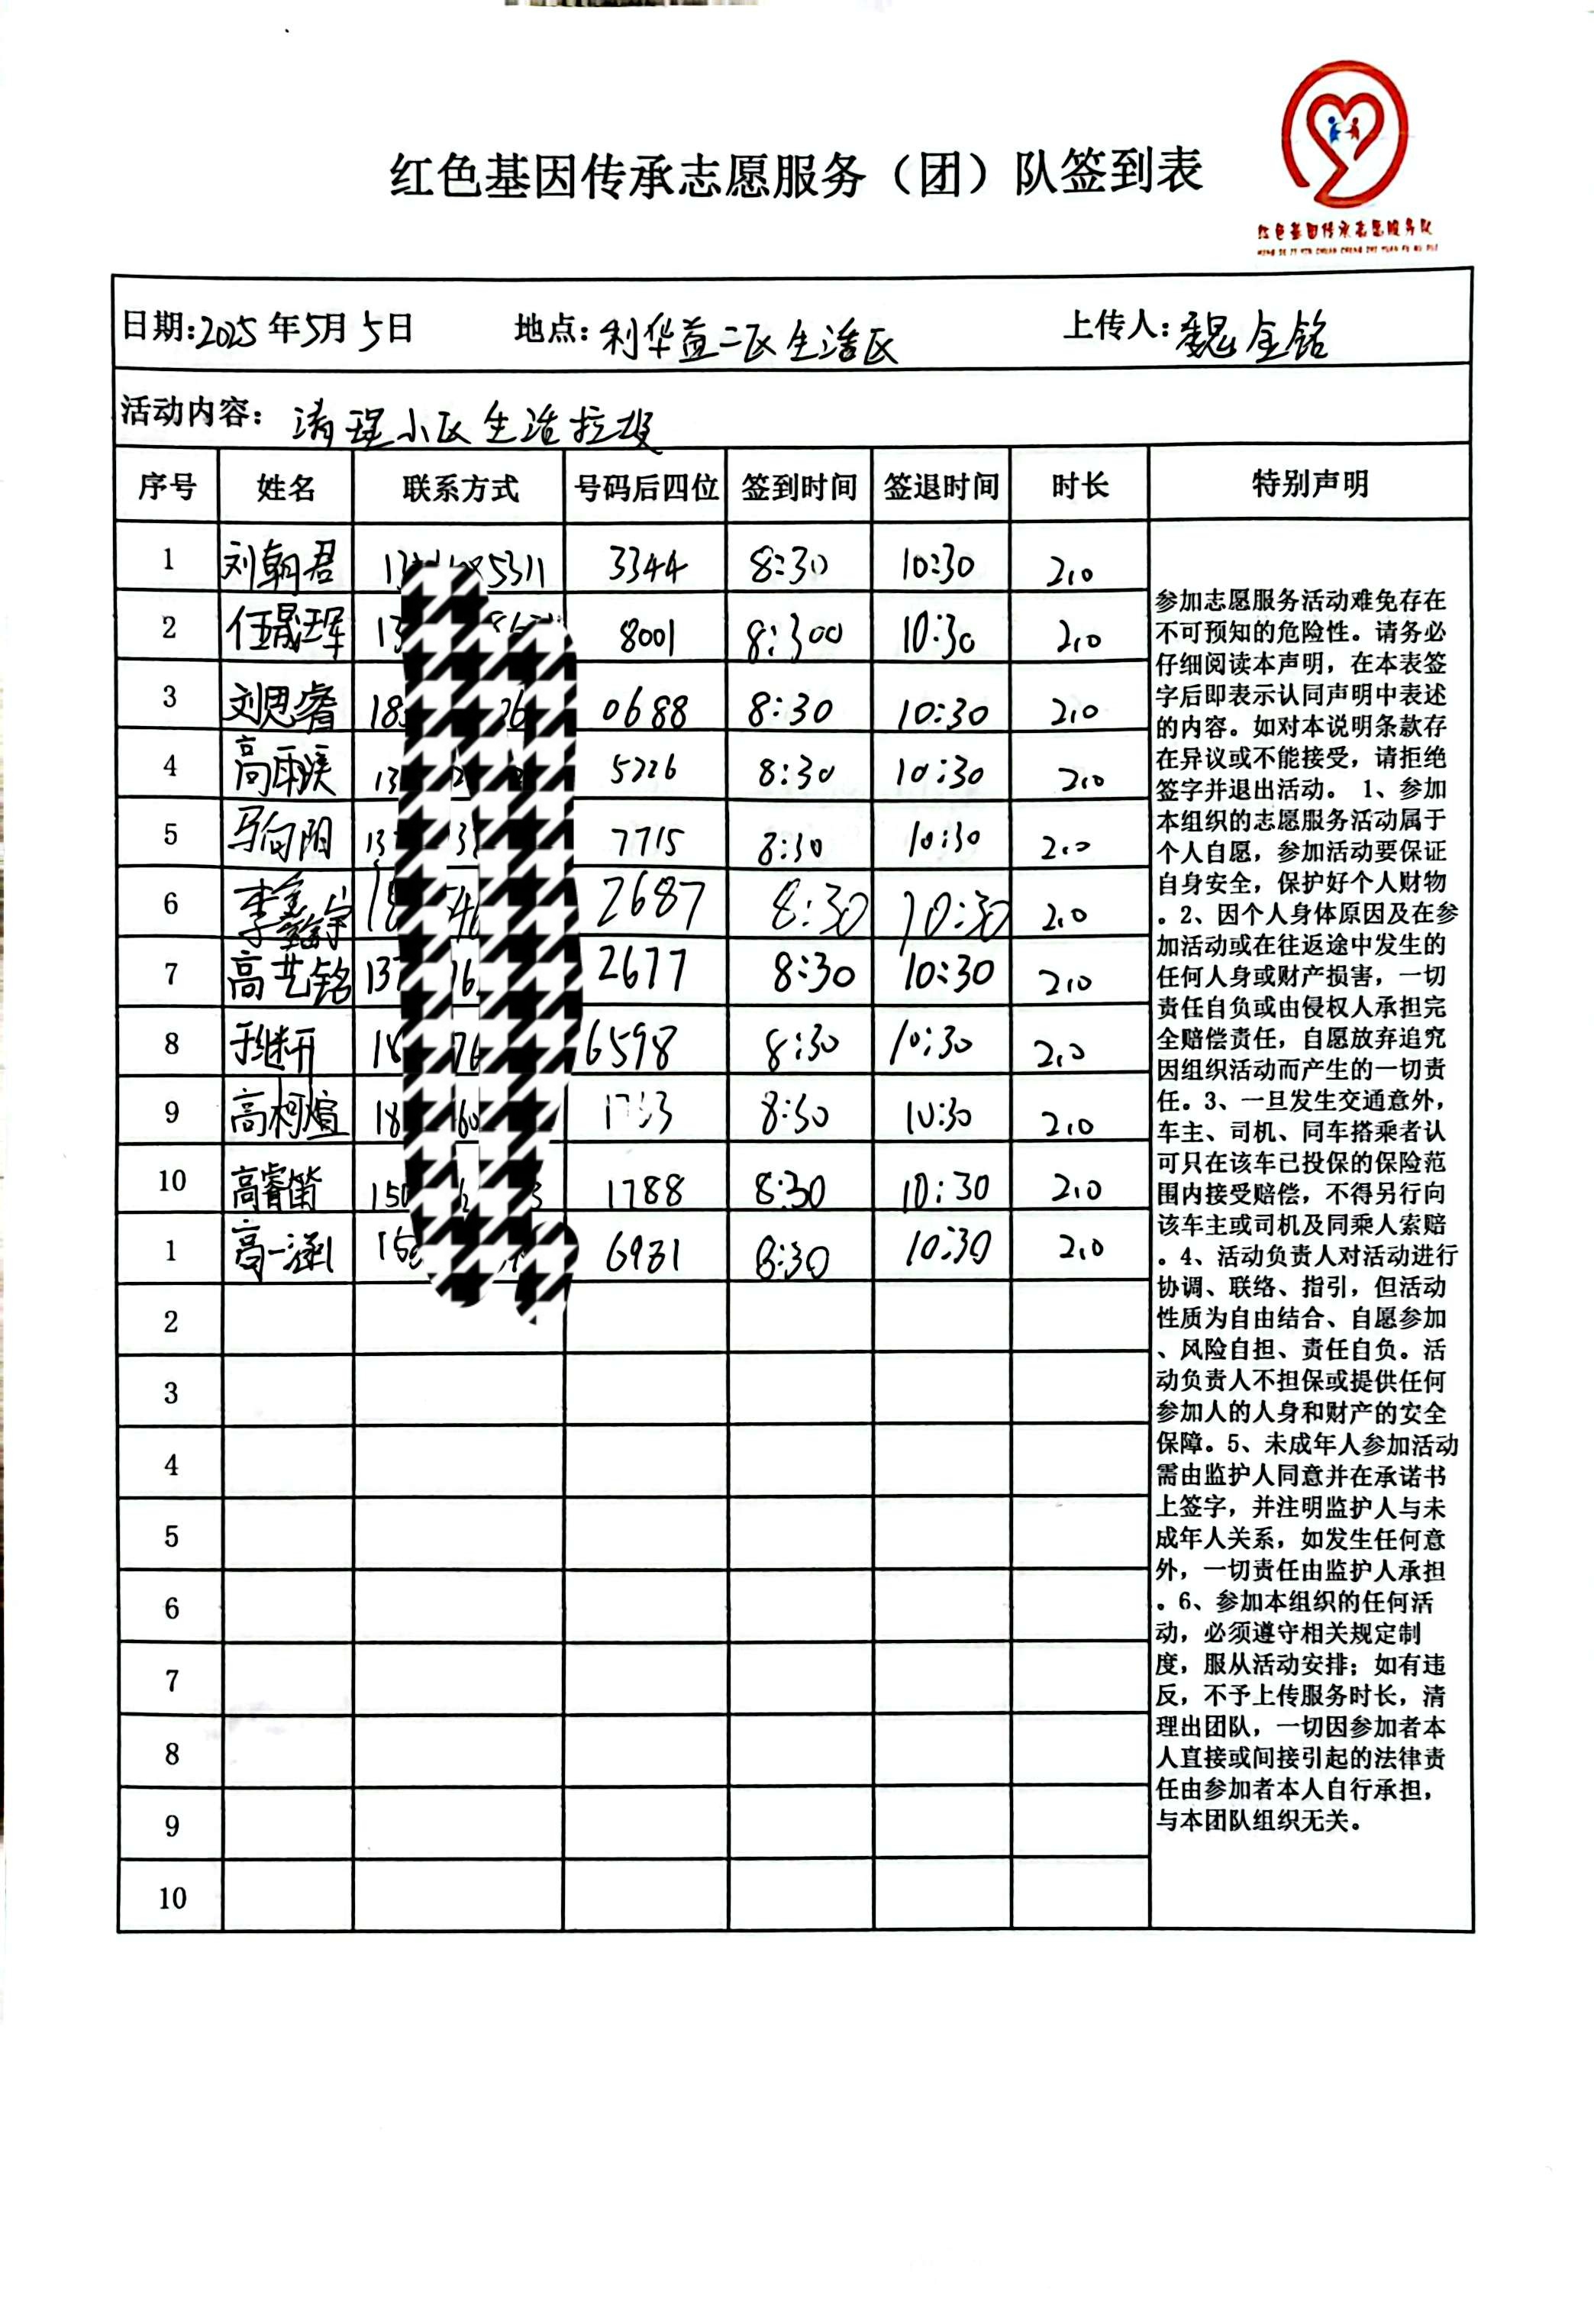 红色基因传承志愿服务（团）队签到表
红色基因传承志愿服务队
日期:2025年5月5日 地点:利华益二区生活区 上传人:魏金铭
活动内容: 清理小区生活垃圾
序号 姓名 联系方式 号码后四位 签到时间 签退时间 时长 特别声明
1 刘朝君 5311 3344 8:30 10:30 2.0
2 任晟珲 13 8001 8:300 10:30 2.0
3 刘思睿 18 26 0688 8:30 10:30 2.0
4 高雨溪 13 5226 8:30 10:30 2.0
5 马向阳 13 3 7715 8:30 10:30 2.0
6 李 18 2687 8:30 10:30 2.0
7 高艺铭 137 16 2677 8:30 10:30 2.0
8 于继开 18 76 6598 8:30 10:30 2.0
9 高柯煊 18 60 8:30 10:30 2.0
10 高睿笛 150 3 1788 8:30 10:30 2.0
1 高一涵 15 6981 8:30 10:30 2.0
2
3
4
5
6
7
8
9
10
参加志愿服务活动难免存在
不可预知的危险性。请务必
仔细阅读本声明，在本表签
字后即表示认同声明中表述
的内容。如对本说明条款存
在异议或不能接受，请拒绝
签字并退出活动。 1、参加
本组织的志愿服务活动属于
个人自愿，参加活动要保证
自身安全，保护好个人财物
。2、因个人身体原因及在参
加活动或在往返途中发生的
任何人身或财产损害，一切
责任自负或由侵权人承担完
全赔偿责任，自愿放弃追究
因组织活动而产生的一切责
任。3、一旦发生交通意外，
车主、司机、同车搭乘者认
可只在该车已投保的保险范
围内接受赔偿，不得另行向
该车主或司机及同乘人索赔
。4、活动负责人对活动进行
协调、联络、指引，但活动
性质为自由结合、自愿参加
、风险自担、责任自负。活
动负责人不担保或提供任何
参加人的人身和财产的安全
保障。5、未成年人参加活动
需由监护人同意并在承诺书
上签字，并注明监护人与未
成年人关系，如发生任何意
外，一切责任由监护人承担
。6、参加本组织的任何活
动，必须遵守相关规定制
度，服从活动安排；如有违
反，不予上传服务时长，清
理出团队，一切因参加者本
人直接或间接引起的法律责
任由参加者本人自行承担，
与本团队组织无关。